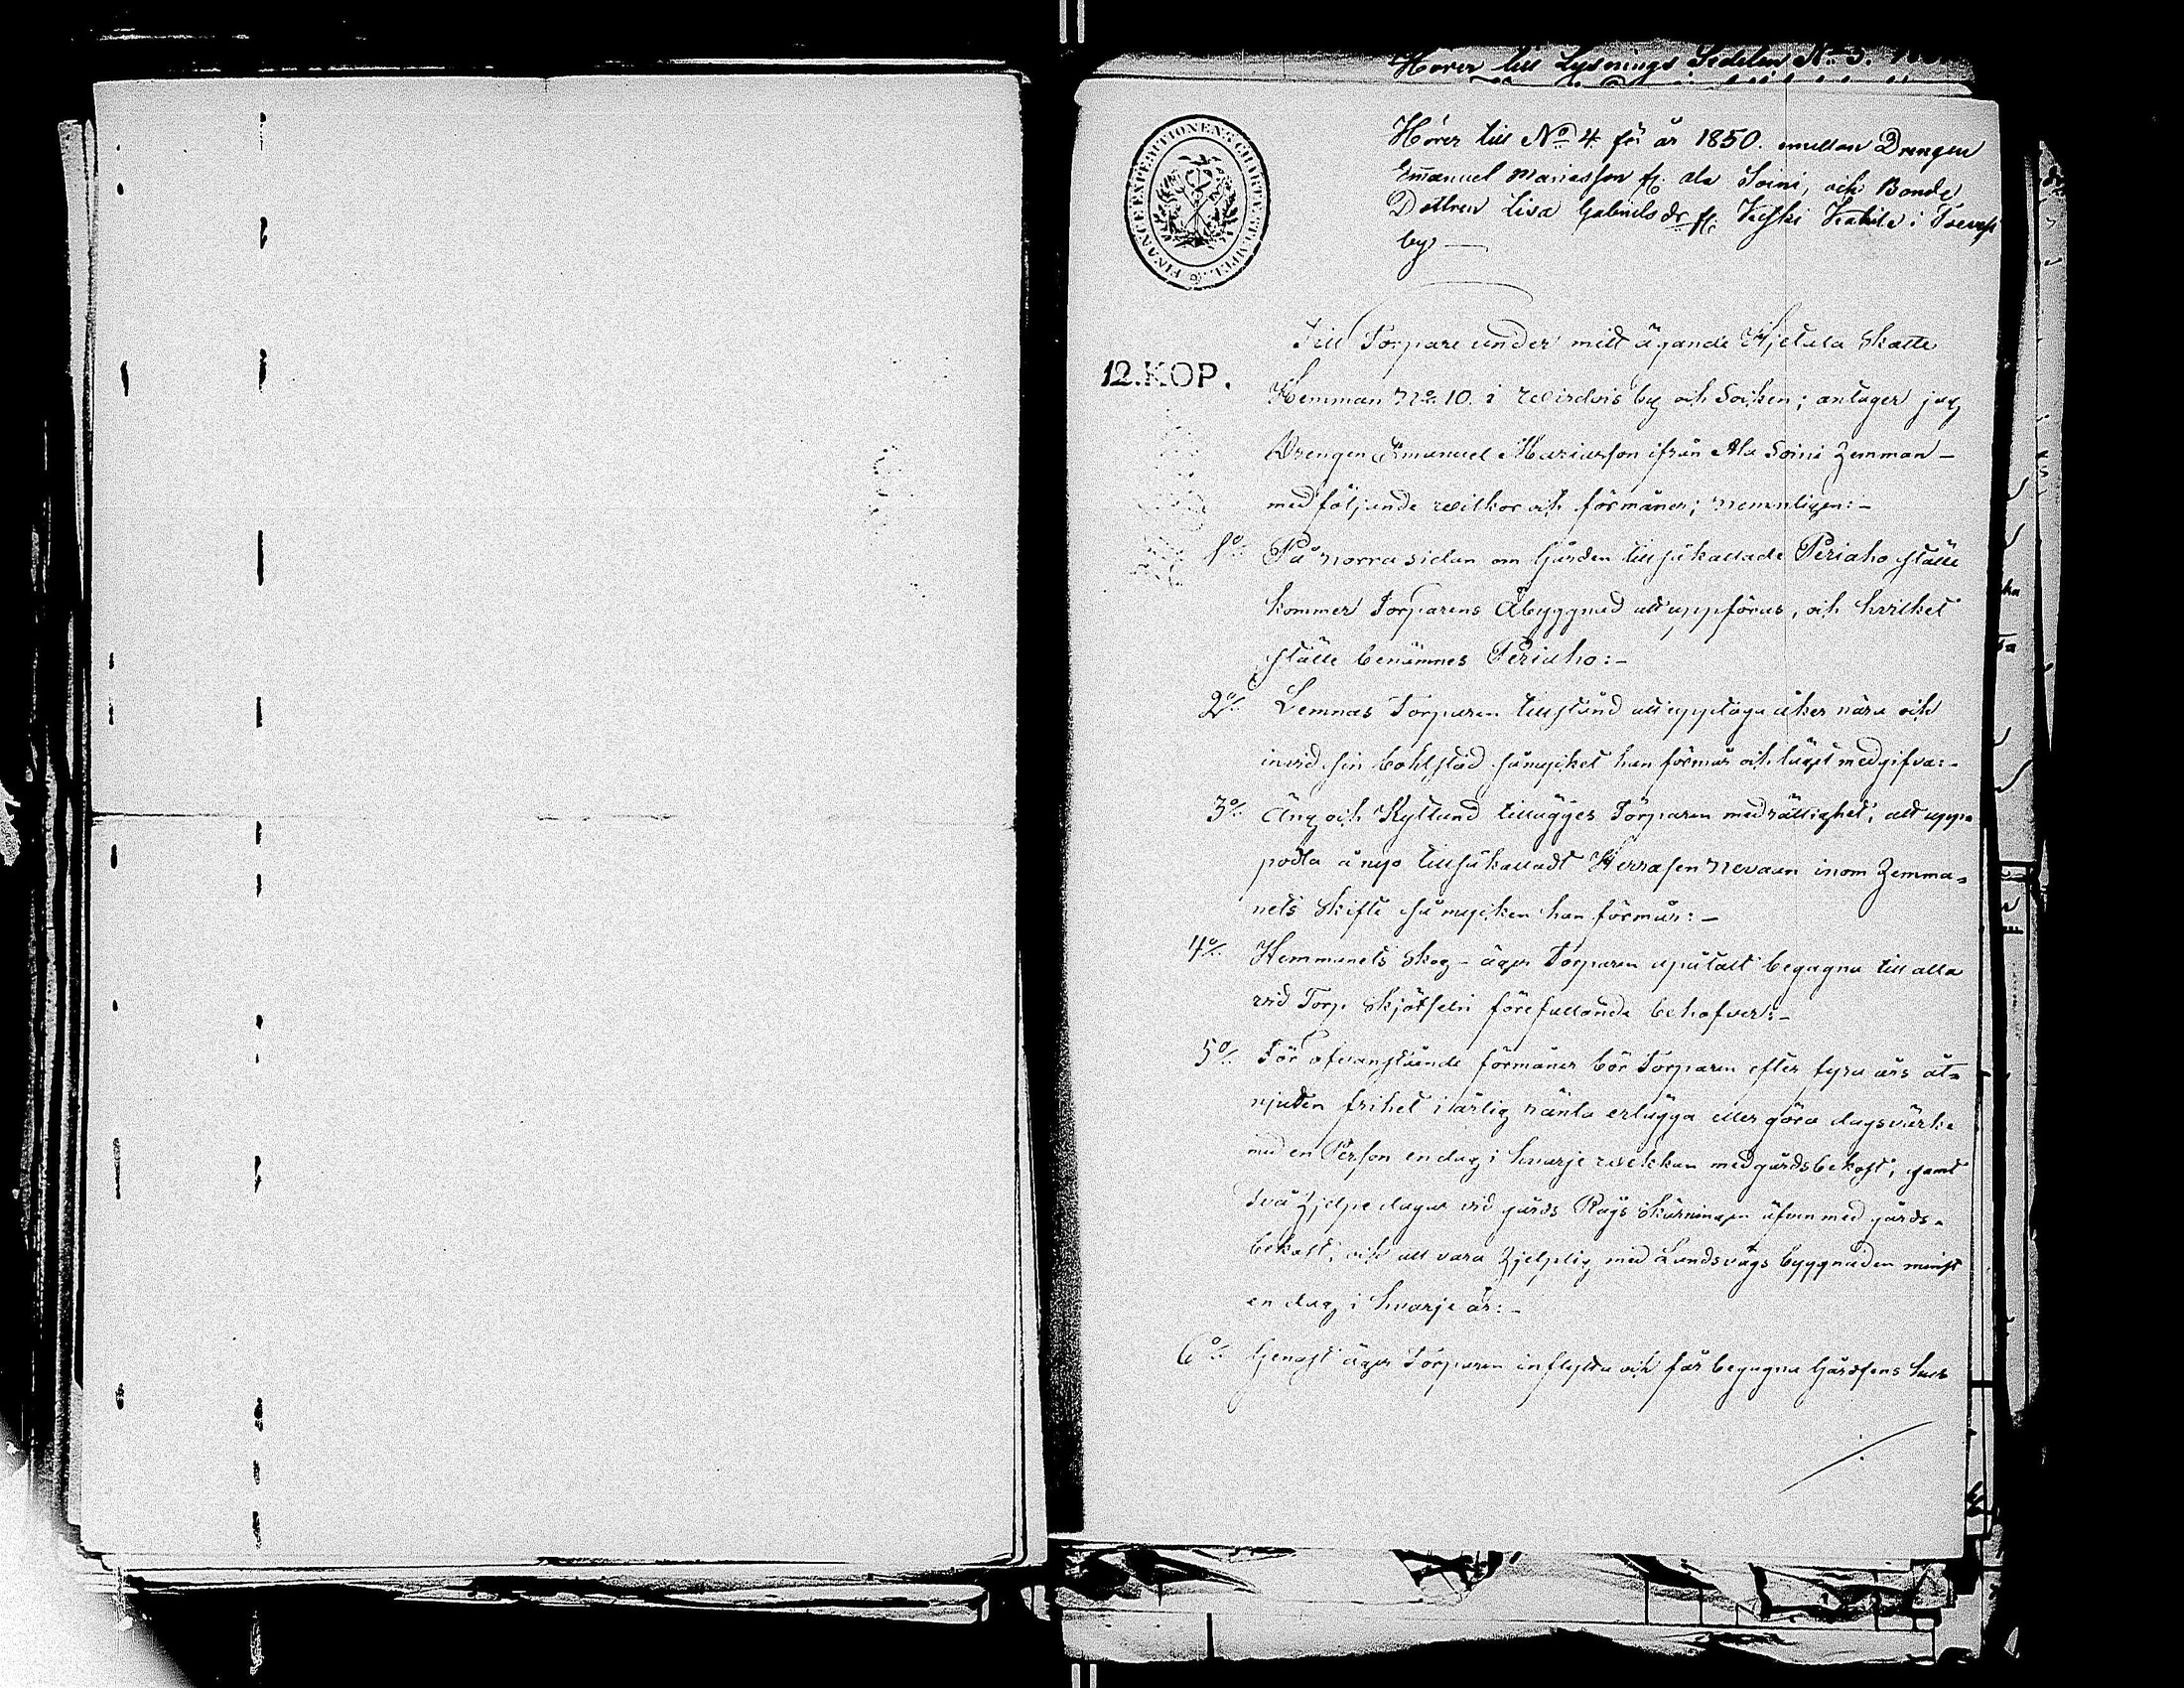 Hörer till Lysnings Sedelen No 3.
Hörer till No 4 för år 1850. emellan Drengen
Emanuel Mariasson fr. Ala Soini, och Bonde
Dottren Lisa Gabrielsdr fr. i
by —
FINANCE EXPEDITIONENS CHARTÆ STÄMPEL
12. KOP.
Till Torpare under mitt ägande Hjetala Skatte
Hemman No 10. i Wirdois by och Socken; antager jag
Drengen Emanuel Mariasson ifrån Ala Soini Hemman –
med följande willkor och förmåner; nemnligen: –
1o På norra sidan om Gården till så kallade Periaho ställe
kommer Torparens Åbyggnad att uppföras, och hvilket
ställe benämnes Periaho: –
2o Lemnas Torparen tillstånd att upptaga åker nära och
invid sin bohlstad så mycket han förmår och läget medgifva: –
3o Äng och Kyttland tillägges Torparen med rättighet, att upp=
podla å nyo till så kalladt Herrasen Nevaan inom Hemma=
nets Skifte så mycken han förmår: –
4o Hemmanets Skog – äger Torparen opåtalt begagna till alla
vid Torp Skjötseln förefallande behofver: –
5o För ofvanstående förmåner bör Torparen efter fyra års åt=
njuten frihet i årlig ränta erlägga eller göra dagsvärke
med en Person en dag i hvarje wekkan med gårdsbekost, samt
två Hjelpe dagar vid gårds Rågs Skärningen äfven med gårds=
bekost, och att vara Hjelplig med Landsvägs byggnaden minst
en dag i hvarje år: –
6o Genast äger Torparen inflytta och får begagna Gårdsens